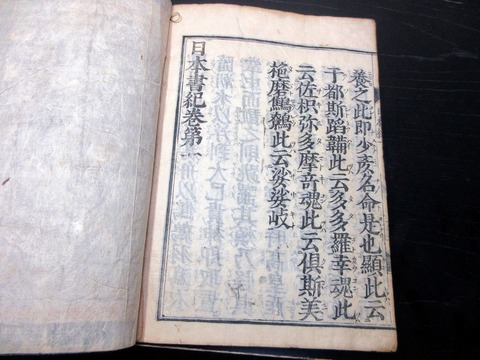 養之此即少彦名命是也顯此云
于都斯蹈鞴此云多多羅幸魂此
云佐枳弥多摩竒魂此云俱斯美
拖磨鷦鷯此云娑娑岐
日本書紀卷第一